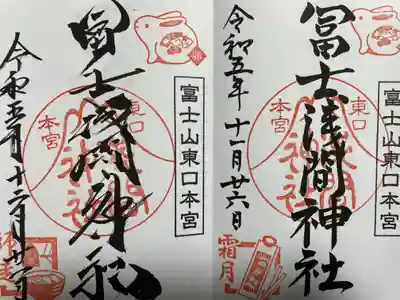 富士山東口本宮
冨士浅間神社
東口
本宮
令和五年十二月廿六日
富士山東口本宮
冨士浅間神社
東口
本宮
令和五年十一月廿六日
霜月